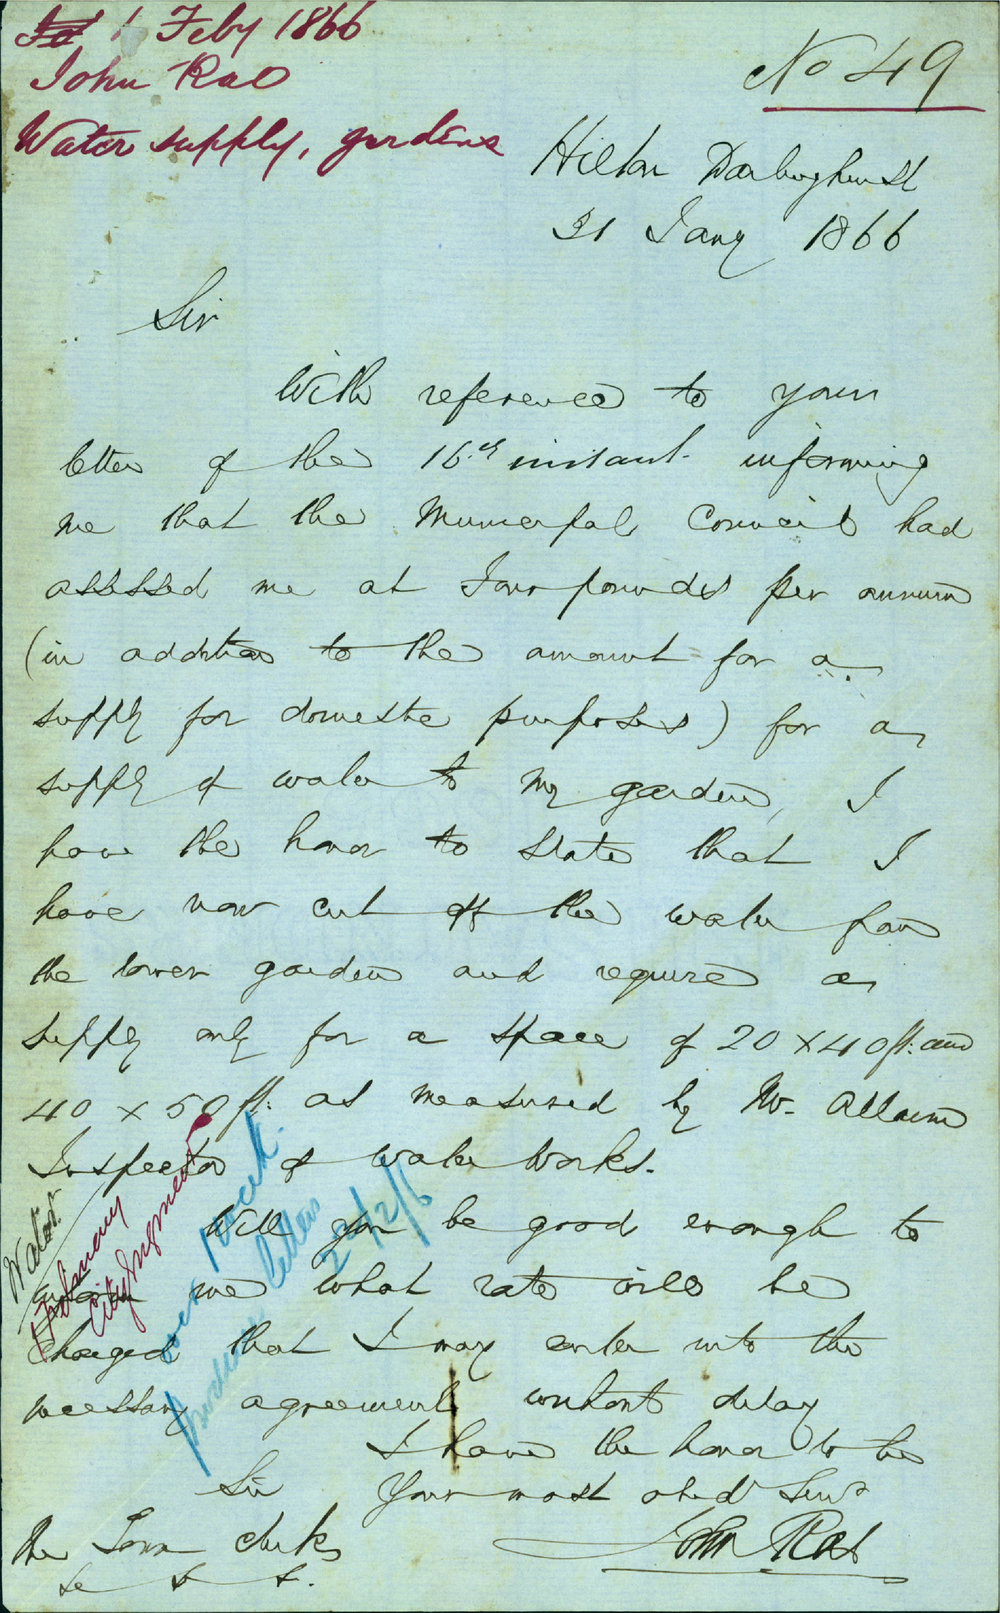 1 Feby 1866
John Rae
Water supply, gardens
No 49
Hilton Darlinghurst
31 Jany 1866
Sir
With reference to your
letter of the 16th instant informing
me that the Municipal Council had
assessed me at Four pounds per annum
(in addition to the amount for a
supply for domestic purposes) for a
supply of water to my garden, I
have the honor to state that I
have now cut off the water from
the lower garden and require a
supply only for a space of 20 x 40 ft: and
40 x 50 ft: as measured by Mr.
Inspector of Water Works.
Will you be good enough to
inform me what rate will be
charged that I may enter into the
necessary agreement without delay
I have the honor to be
Sir Your most obedt Servt
The Town Clerk John Rae
Water
City Engineer
letters